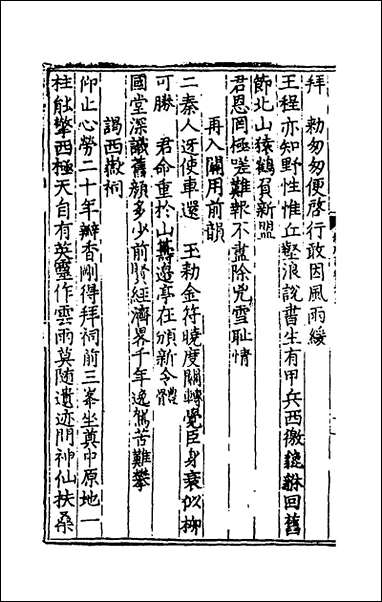 拜 勑匆匆便啓行敢因風雨緩
王程亦知野性惟丘壑浪說書生有甲兵西徼貔貅回舊
節北山猿鶴負新盟
君恩罔極嗟難報不盡除兇雪耻情
再入關用前韻
二秦人迓使車還 王勑金符曉度關轉覺臣身衰似柳
可勝 君命重於山籌邊亭在頒新令體
國堂深識舊顔多少前賢經濟畧千年逸駕苦難攀
謁西嶽祠
仰止心勞二十年瓣香剛得拜祠前三峯坐奠中原地一
柱能擎西極天自有英靈作雲雨莫随遺迹問神仙扶桑